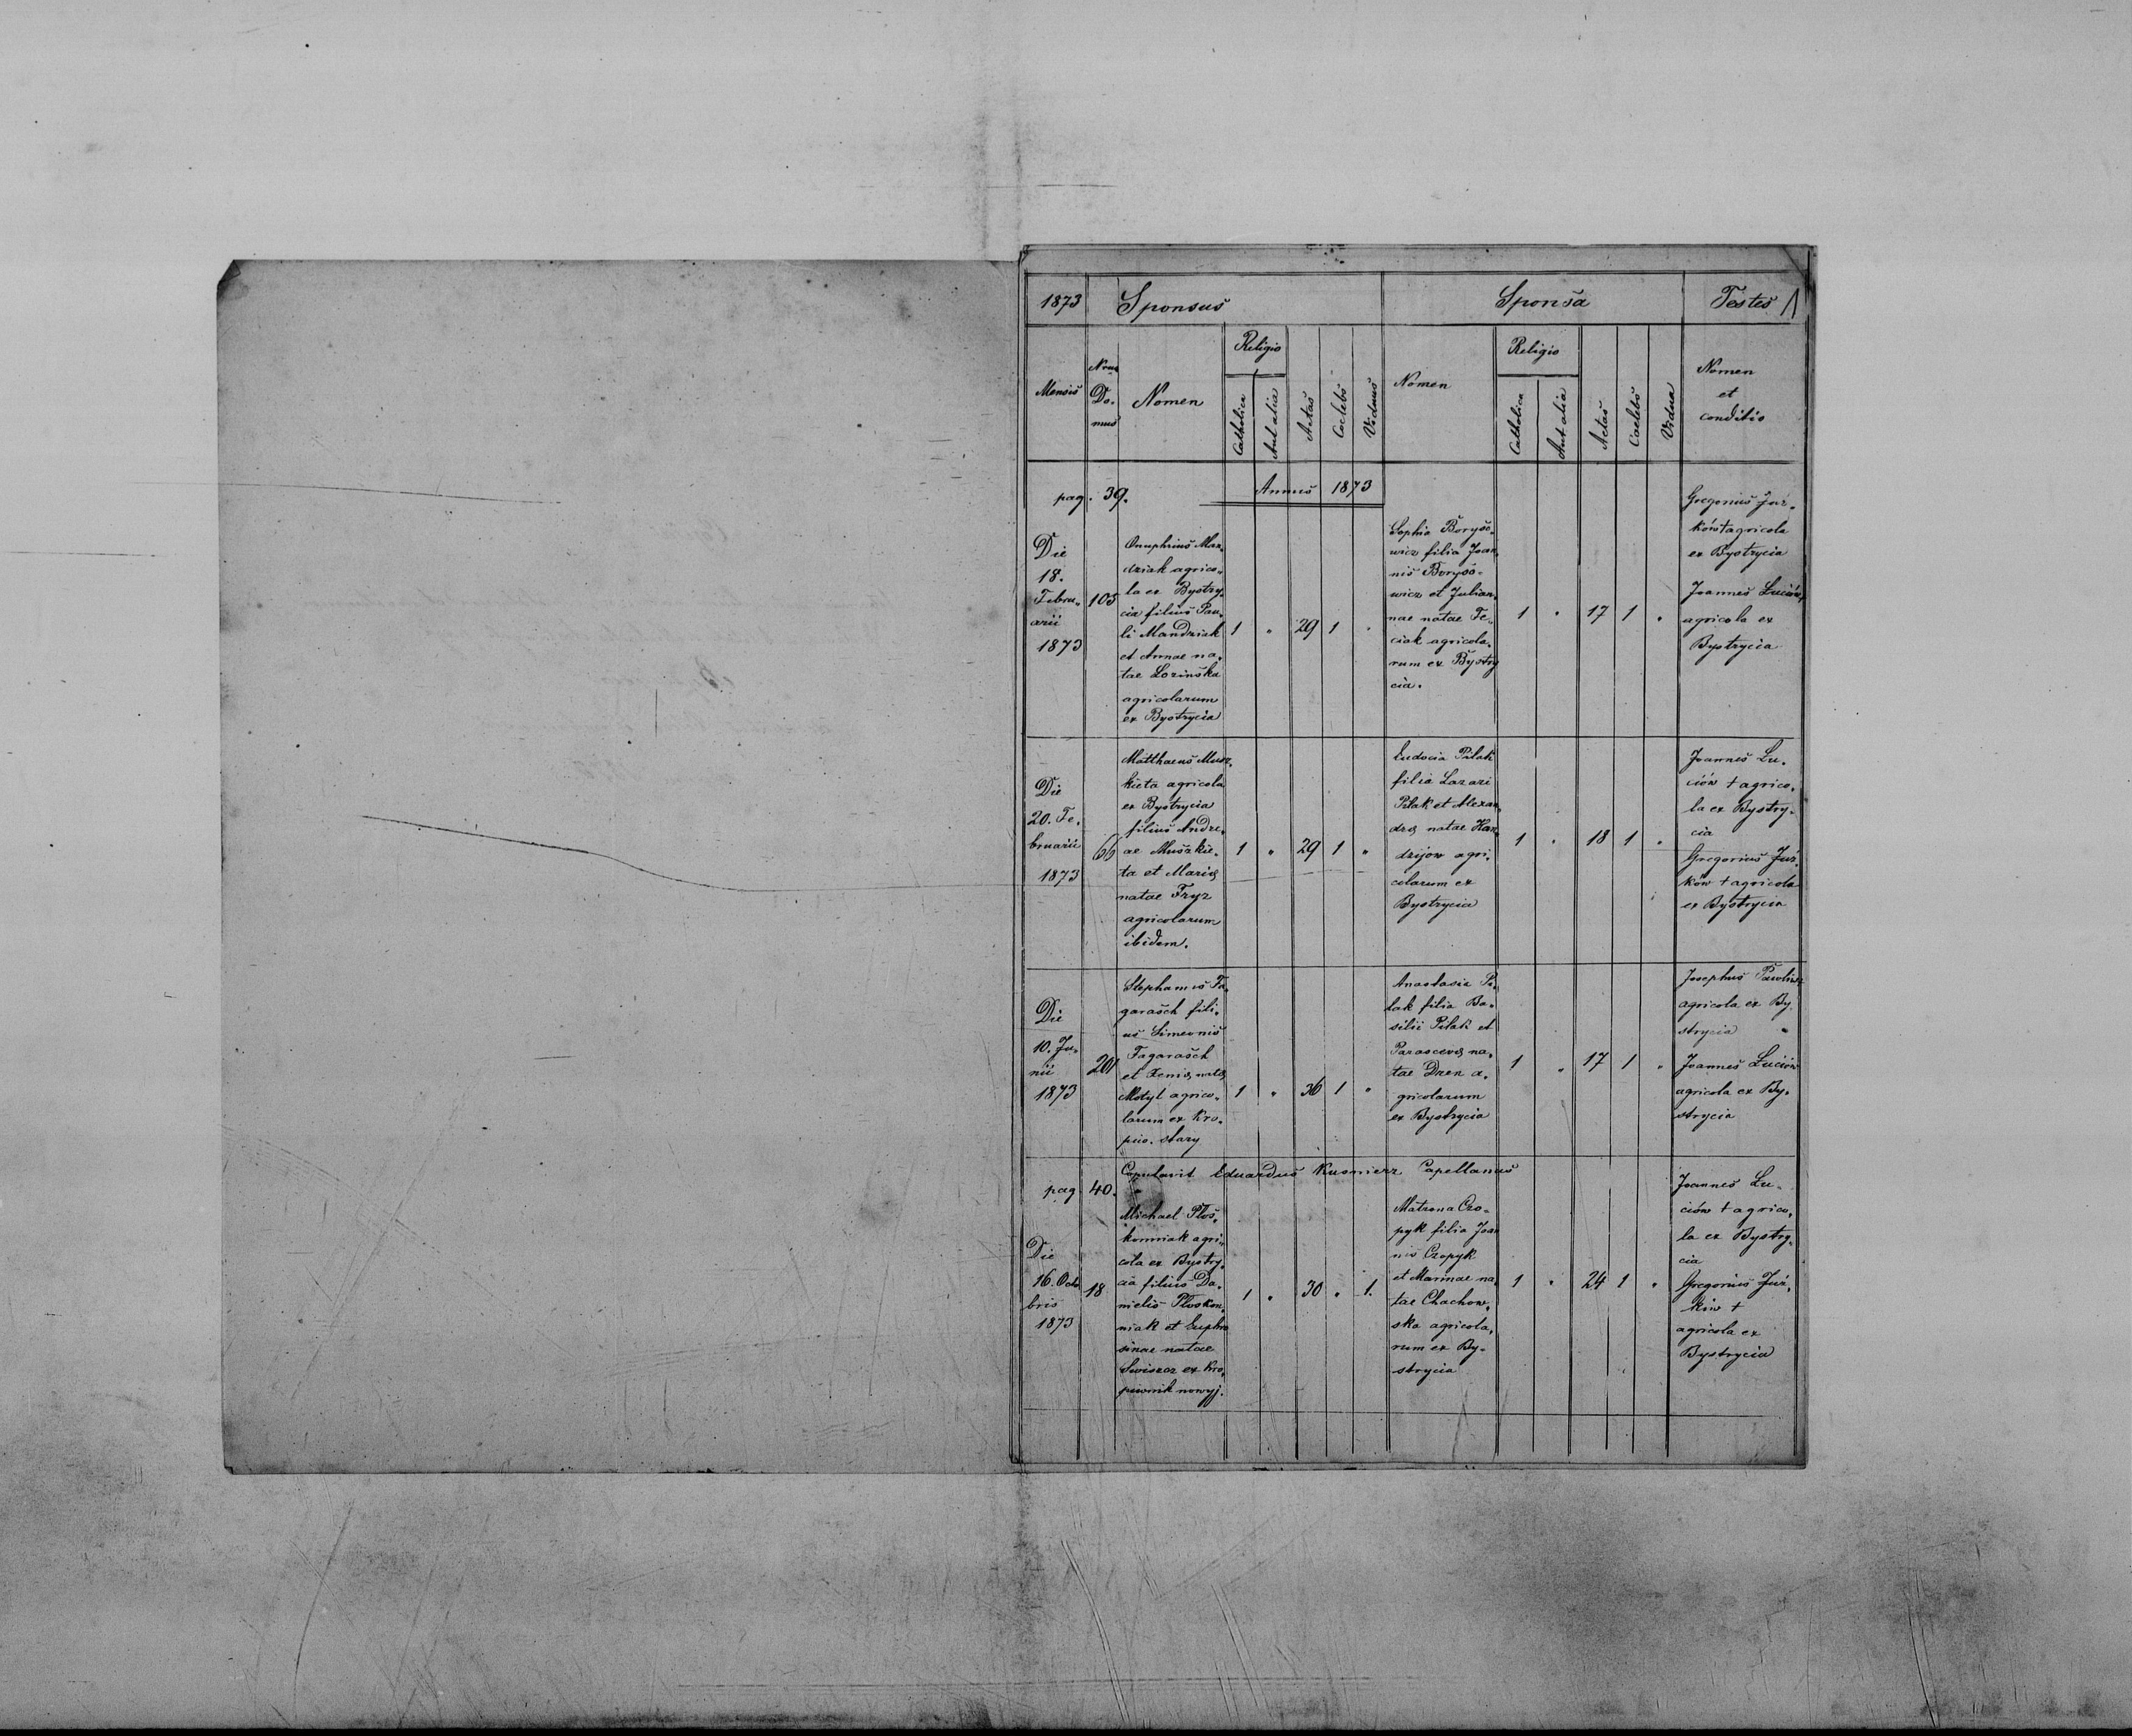 1873 Sponsus Sponsa Testes
Mensis
Num
Do-
mus
Nomen
Religio
Catholica
Aut alia
Aetas
Caelebs
Viduus
Nomen
Religio
Catholica
Aut alia
Aetas
Caelebs
Vidua
Nomen
et
conditio
pag. 39.
Annus 1873
Die
18.
Febru-
arii
1873
105
Onuphrius Man-
dziak agrico-
la ex Bystry-
cia filius Pau-
li Mandziak
et Annae na-
tae Lozinska
agricolarum
ex Bystrycia
1 " 29 1 "
Sophia Boryso-
wicz filia Joan-
nis Boryso-
wicz et Julian-
nae natae Fe-
ciak agricola-
rum ex Bystry
cia.
1 " 17 1 "
Gregorius Juz-
ków + agricola
ex Bystrycia
Joannes Luciów +
agricola ex
Bystrycia
Die
20. Fe-
bruarii
1873
66
Matthaeus Musz-
kieta agricola
ex Bystrycia
filius Andre-
ae Muszkie-
ta et Mariae
natae Fryz
agricolarum
ibidem.
1 " 29 1 "
Eudocia Pilak
filia Lazari
Pilak et Alexan-
drae natae Han-
dzijow agri-
colarum ex
Bystrycia
1 " 18 1 "
Joannes Lu-
ciów + agrico-
la ex Bystry-
cia
Gregorius Juz-
ków + agricola
ex Bystrycia
Die
10. Ju-
nii
1873
201
Stephanus Fa-
garasch fili-
us Simeonis
Fagarasch
et Xeniae natae
Motyl agrico-
larum ex Kro-
piw. stary
1 " 36 1 "
Anastasia Pi-
lak filia Ba-
silii Pilak et
Parascevae na-
tae Dzen a-
gricolarum
ex Bystrycia
1 " 17 1 "
Josephus Pawlisz
agricola ex By
strycia "
Joannes Luciów
agricola ex By-
strycia
Copulavit Eduardus Kusmierz Capellanus
pag. 40.
Die
16. Octo
bris
1873
18
Michael Plos-
konniak agri-
cola ex Bystry-
cia filius Da-
nielis Ploskon-
niak et Euphro
sinae natae
Swiszcz ex Kro-
piwnik nowyj.
1 " 30 " 1.
Matrona Czo-
pyk filia Joan
nis Czopyk
et Marinae na-
tae Chachow-
ska agricola-
rum ex By-
strycia
1 " 24 1 "
Joannes Lu-
ciów + agrico-
la ex Bystry-
cia
Gregorius Juz-
ków +
agricola ex
Bystrycia